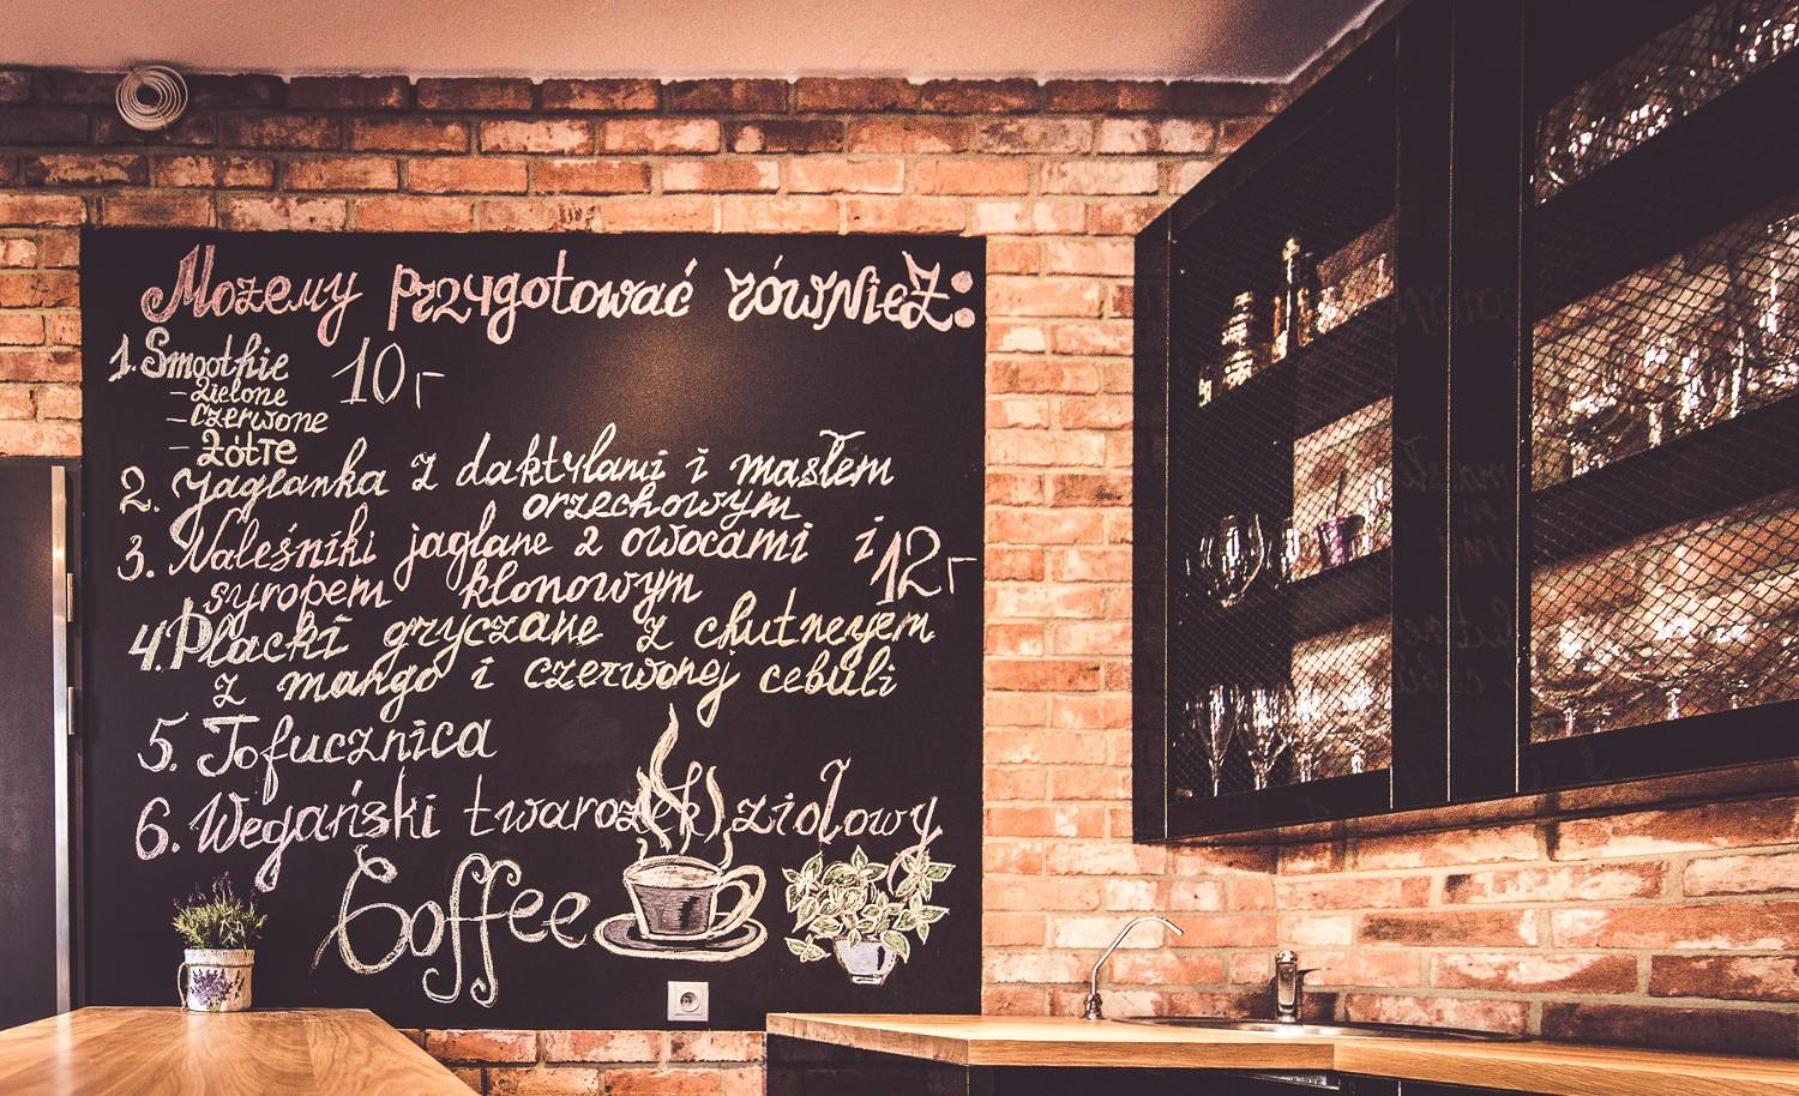 Możemy przygotować również:
1. Smoothie 10,-
- zielone
- czerwone
- żółte
2. Jaglanka z daktylami i masłem
orzechowym
3. Naleśniki jaglane z owocami i 12,-
syropem klonowym
4. Placki gryczane z chutneyem
z mango i czerwonej cebuli
5. Tofucznica
6. Wegański twarożek ziołowy
Coffee